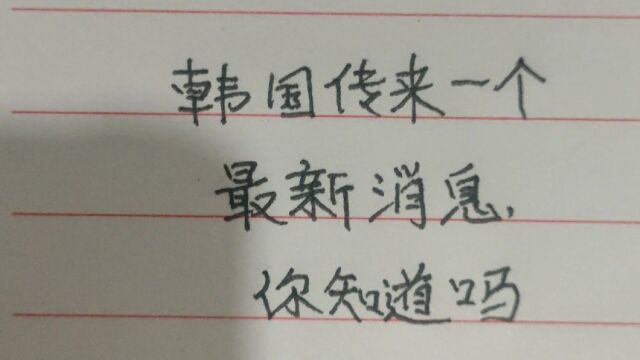 韩国传来一个
最新消息,
你知道吗